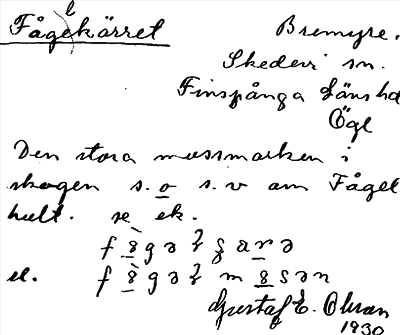 Fågelkärret
Bremyre.
Skedevi sn.
Finspånga läns hd
Ögl
Den stora mossmarken i
skogen s. o s. v om Fågel
hult. se ek.
el.
Gustaf E. Olsson
1930